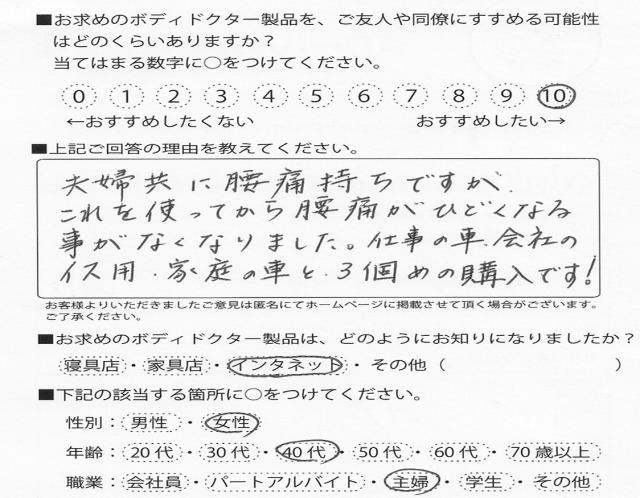 ■お求めのボディドクター製品を、ご友人や同僚にすすめる可能性
はどのくらいありますか？
当てはまる数字に○をつけてください。
0 1 2 3 4 5 6 7 8 9 10
←おすすめしたくない おすすめしたい→
■上記ご回答の理由を教えてください。
夫婦共に腰痛持ちですが、
これを使ってから腰痛がひどくなる
事がなくなりました。仕事の車、会社の
イス用、家庭の車と、3個めの購入です!
お客様よりいただきましたご意見は匿名にてホームページに掲載させて頂く場合がございます。
ご了承ください。
■お求めのボディドクター製品は、どのようにお知りになりましたか？
寝具店・家具店・インタネット・その他（ ）
■下記の該当する箇所に○をつけてください。
性別：男性・女性
年齢：20代・30代・40代・50代・60代・70歳以上
職業：会社員・パートアルバイト・主婦・学生・その他